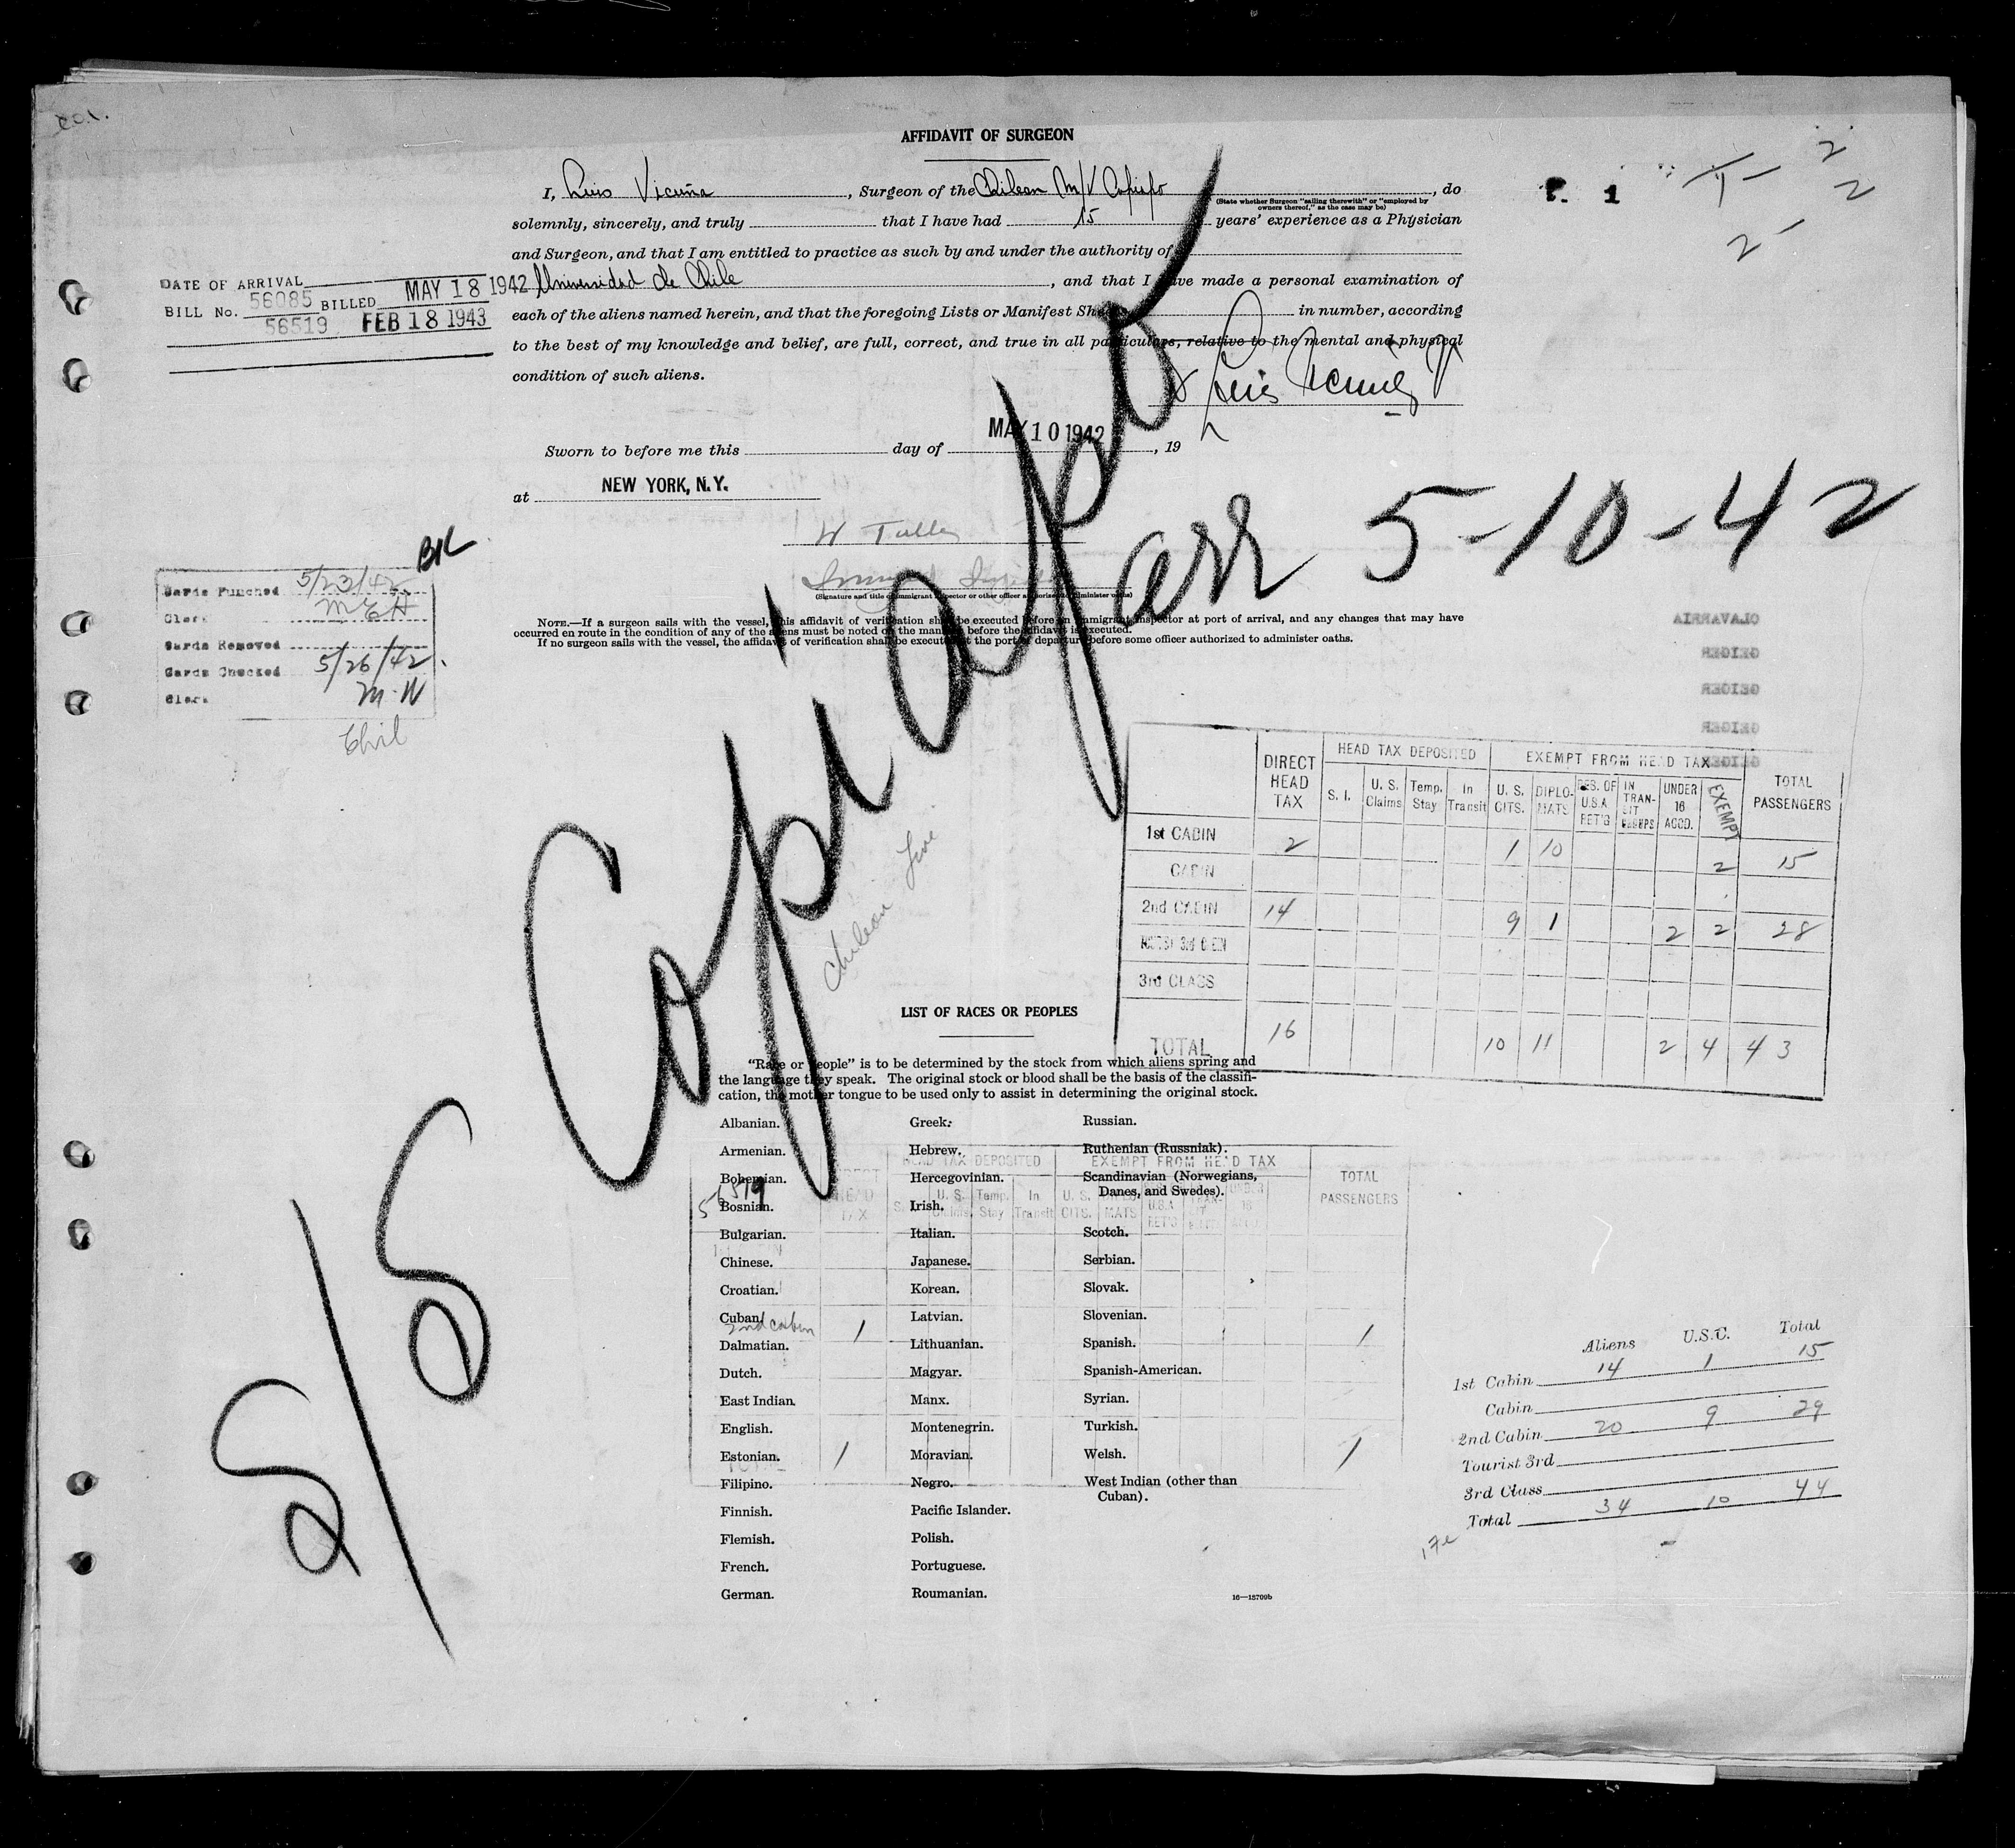 AFFIDAVIT OF SURGEON
I, Luis Vicuña, Surgeon of the Chilean M/V Copiapo, do
(State whether Surgeon "sailing therewith" or "employed by owners thereof," as the case may be)
solemnly, sincerely, and truly that I have had 15 years' experience as a Physician
and Surgeon, and that I am entitled to practice as such by and under the authority of
Universidad de Chile, and that I have made a personal examination of
each of the aliens named herein, and that the foregoing Lists or Manifest in number, according
to the best of my knowledge and belief, are full, correct, and true in all particulars, relative to the mental and physical
condition of such aliens.
Luis Vicuña V
Sworn to before me this day of MAY 10 1942, 19
at NEW YORK, N.Y.
W Tulley
(Signature and title of immigrant inspector or other officer authorized to administer oaths)
NOTE.—If a surgeon sails with the vessel, this affidavit of verification shall be executed before an immigrant inspector at port of arrival, and any changes that may have
occurred en route in the condition of any of the aliens must be noted on the manifest before the affidavit is executed.
If no surgeon sails with the vessel, the affidavit of verification shall be executed at the port of departure before some officer authorized to administer oaths.
P. 1
2
T - 2
2 -
DATE OF ARRIVAL
BILL No. 56085 BILLED MAY 18 1942
56519 FEB 18 1943
BK
Cards Punched 5/23/42
Clerk MEH
Cards Removed
Cards Checked 5/26/42.
Clerk M.W
Chil
S/S Copiapo
arr 5-10-42
Chilean Line
OLAVARRIA
REDIEG
REDIEG
REDIEG
REDIEG
DIRECT HEAD TAX
HEAD TAX DEPOSITED
EXEMPT FROM HEAD TAX
TOTAL PASSENGERS
S. I. U. S. Claims Temp. Stay In Transit U. S. CITS. DIPLO-MATS RES. OF U.S.A RET'G IN TRAN-SIT UNDER 16 ACCD. EXEMPT
1st CABIN 2 1 10 2 15
CABIN
2nd CABIN 14 9 1 2 2 28
3rd CLASS
TOTAL 16 10 11 2 4 43
LIST OF RACES OR PEOPLES
"Race or people" is to be determined by the stock from which aliens spring and
the language they speak. The original stock or blood shall be the basis of the classifi-
cation, the mother tongue to be used only to assist in determining the original stock.
Albanian.
Armenian.
Bohemian.
Bosnian.
Bulgarian.
Chinese.
Croatian.
Cuban.
Dalmatian.
Dutch.
East Indian.
English.
Estonian.
Filipino.
Finnish.
Flemish.
French.
German.
Greek.
Hebrew.
Hercegovinian.
Irish.
Italian.
Japanese.
Korean.
Latvian.
Lithuanian.
Magyar.
Manx.
Montenegrin.
Moravian.
Negro.
Pacific Islander.
Polish.
Portuguese.
Roumanian.
Russian.
Ruthenian (Russniak).
Scandinavian (Norwegians,
Danes, and Swedes).
Scotch.
Serbian.
Slovak.
Slovenian.
Spanish.
Spanish-American.
Syrian.
Turkish.
Welsh.
West Indian (other than
Cuban).
16—18709b
HEAD TAX DEPOSITED
EXEMPT FROM HEAD TAX
TOTAL PASSENGERS
U. S. Claims Temp. Stay In Transit U. S. CITS. MATS
56519
2nd cabin 1 1
1 1
Aliens U.S.C. Total
1st Cabin 14 1 15
Cabin
2nd Cabin 20 9 29
Tourist 3rd
3rd Class
Total 34 10 44